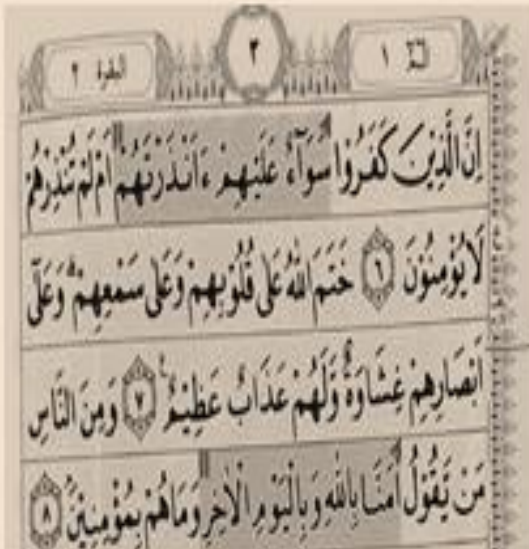 البقرة ٢
٣
الٓمّٓ ١
اِنَّ الَّذِيْنَ كَفَرُوْا سَوَآءٌ عَلَيْهِمْ ءَاَنْذَرْتَهُمْ اَمْ لَمْ تُنْذِرْهُمْ
لَا يُؤْمِنُوْنَ ﴿٦﴾ خَتَمَ اللّٰهُ عَلٰى قُلُوْبِهِمْ وَعَلٰى سَمْعِهِمْ ؕ وَعَلٰٓى
اَبْصَارِهِمْ غِشَاوَةٌ ؗ وَّلَهُمْ عَذَابٌ عَظِيْمٌ ﴿٧﴾ وَمِنَ النَّاسِ
مَنْ يَّقُوْلُ اٰمَنَّا بِاللّٰهِ وَبِالْيَوْمِ الْاٰخِرِ وَمَا هُمْ بِمُؤْمِنِيْنَ ۘ ﴿٨﴾